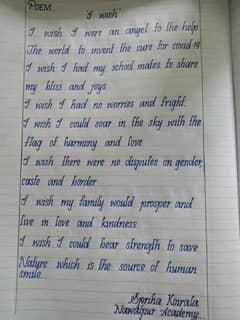 POEM
'I wish'
I wish I were an angel to the help
The world to invent the cure for covid-19
I wish I had my school mates to share
my bliss and joys
I wish I had no worries and fright.
I wish I could soar in the sky with the
flag of harmony and love
I wish there were no disputes on gender,
caste and border
I wish my family would prosper and
live in love and kindness
I wish I could bear strength to save
Nature which is the source of human
smile.
Spriha Koirala
Nawalpur Academy